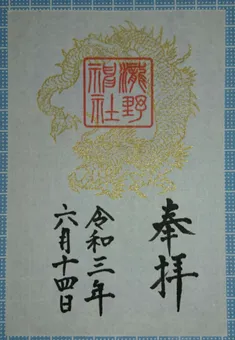 瀧野
神社
奉拝
令和三年
六月十四日